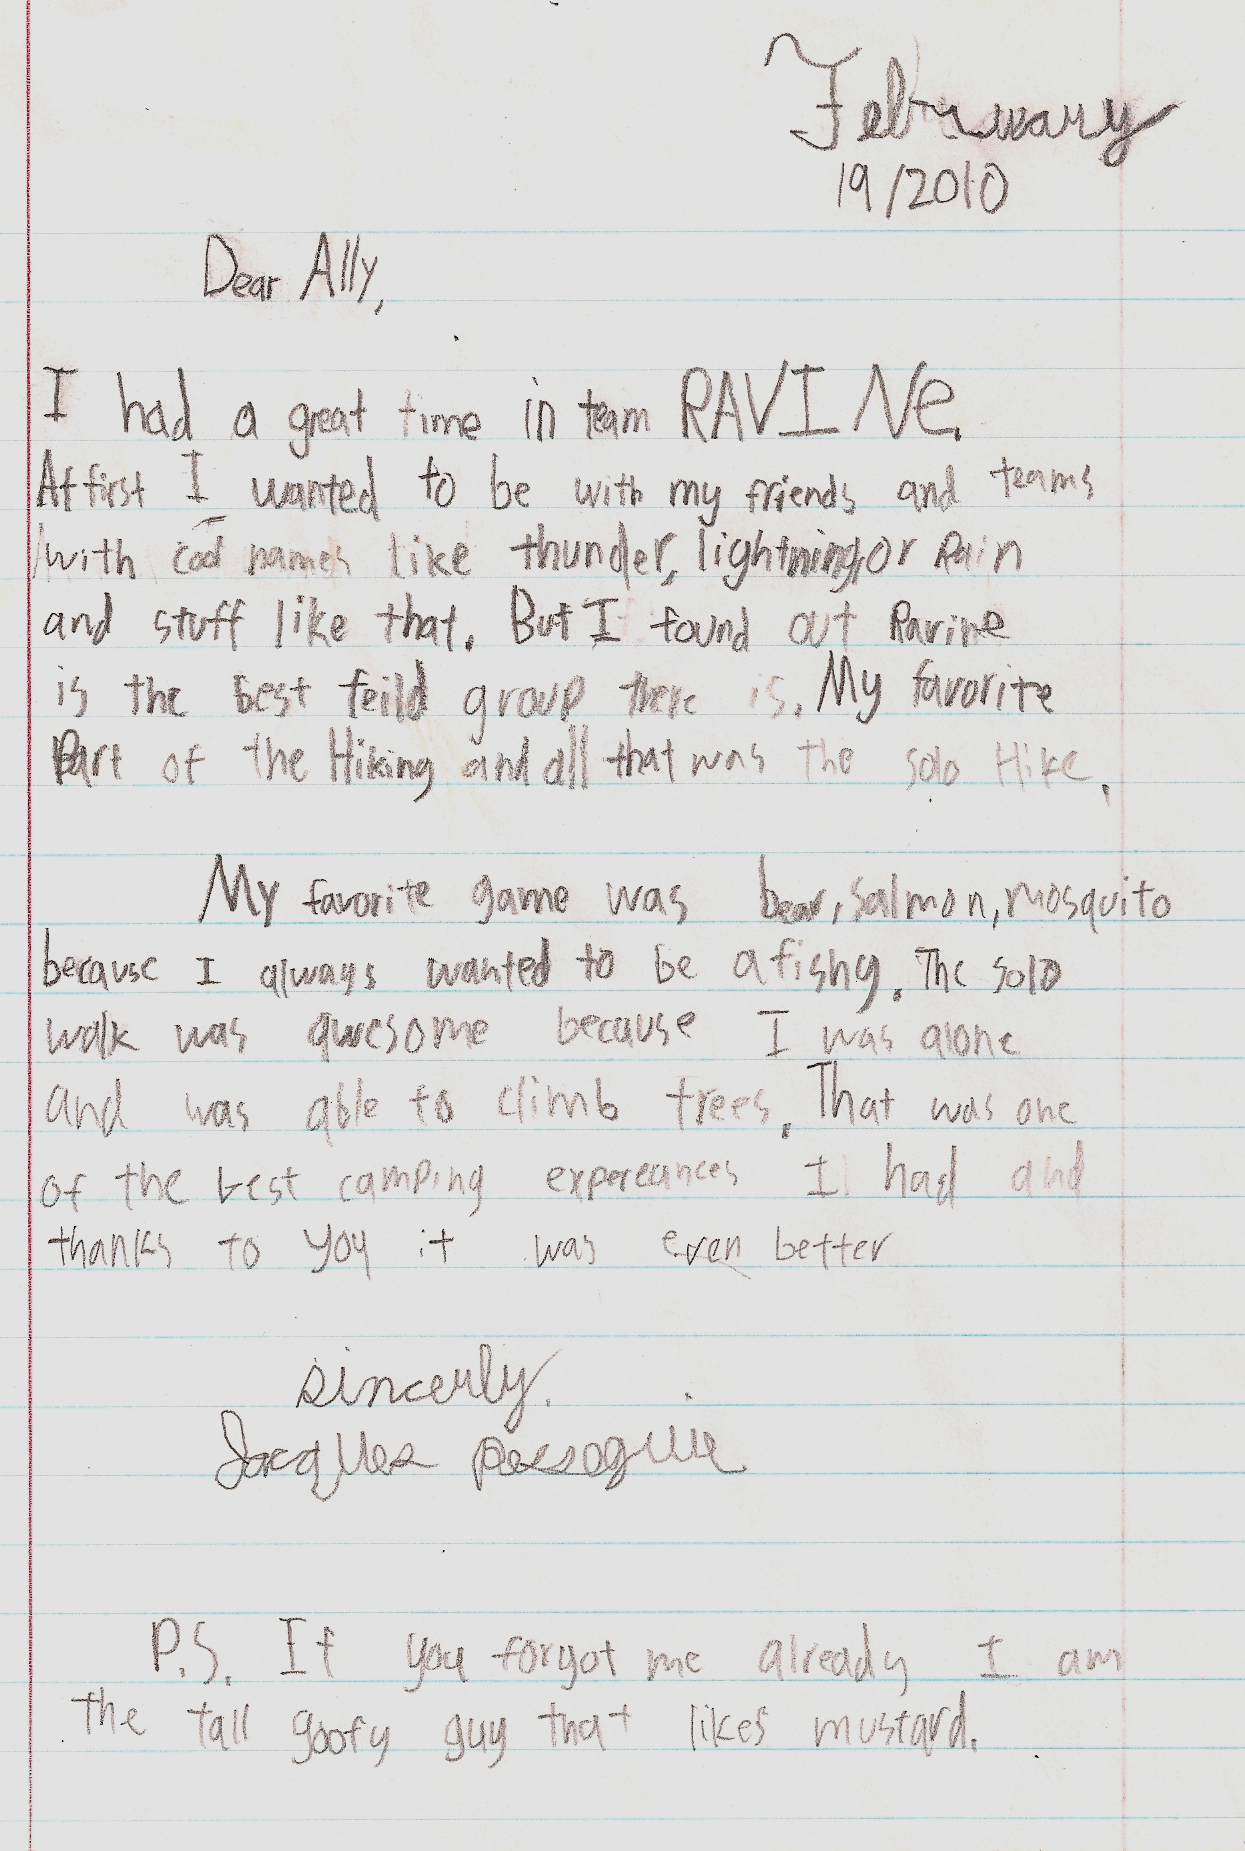 February
19/2010
Dear Ally,
I had a great time in team RAVINe.
At first I wanted to be with my friends and teams
with cool names like thunder, lightning, or Rain
and stuff like that. But I found out Ravine
is the best feild group there is. My favorite
Part of the Hiking and all that was the solo Hike.
My favorite game was bear, salmon, mosquito
because I always wanted to be a fishy. The solo
walk was awesome because I was alone
and was able to climb trees. That was one
of the best camping expereances I had and
thanks to you it was even better
sincerly.
Jacques
P.S. If you forgot me already I am
the tall goofy guy that likes mustard.